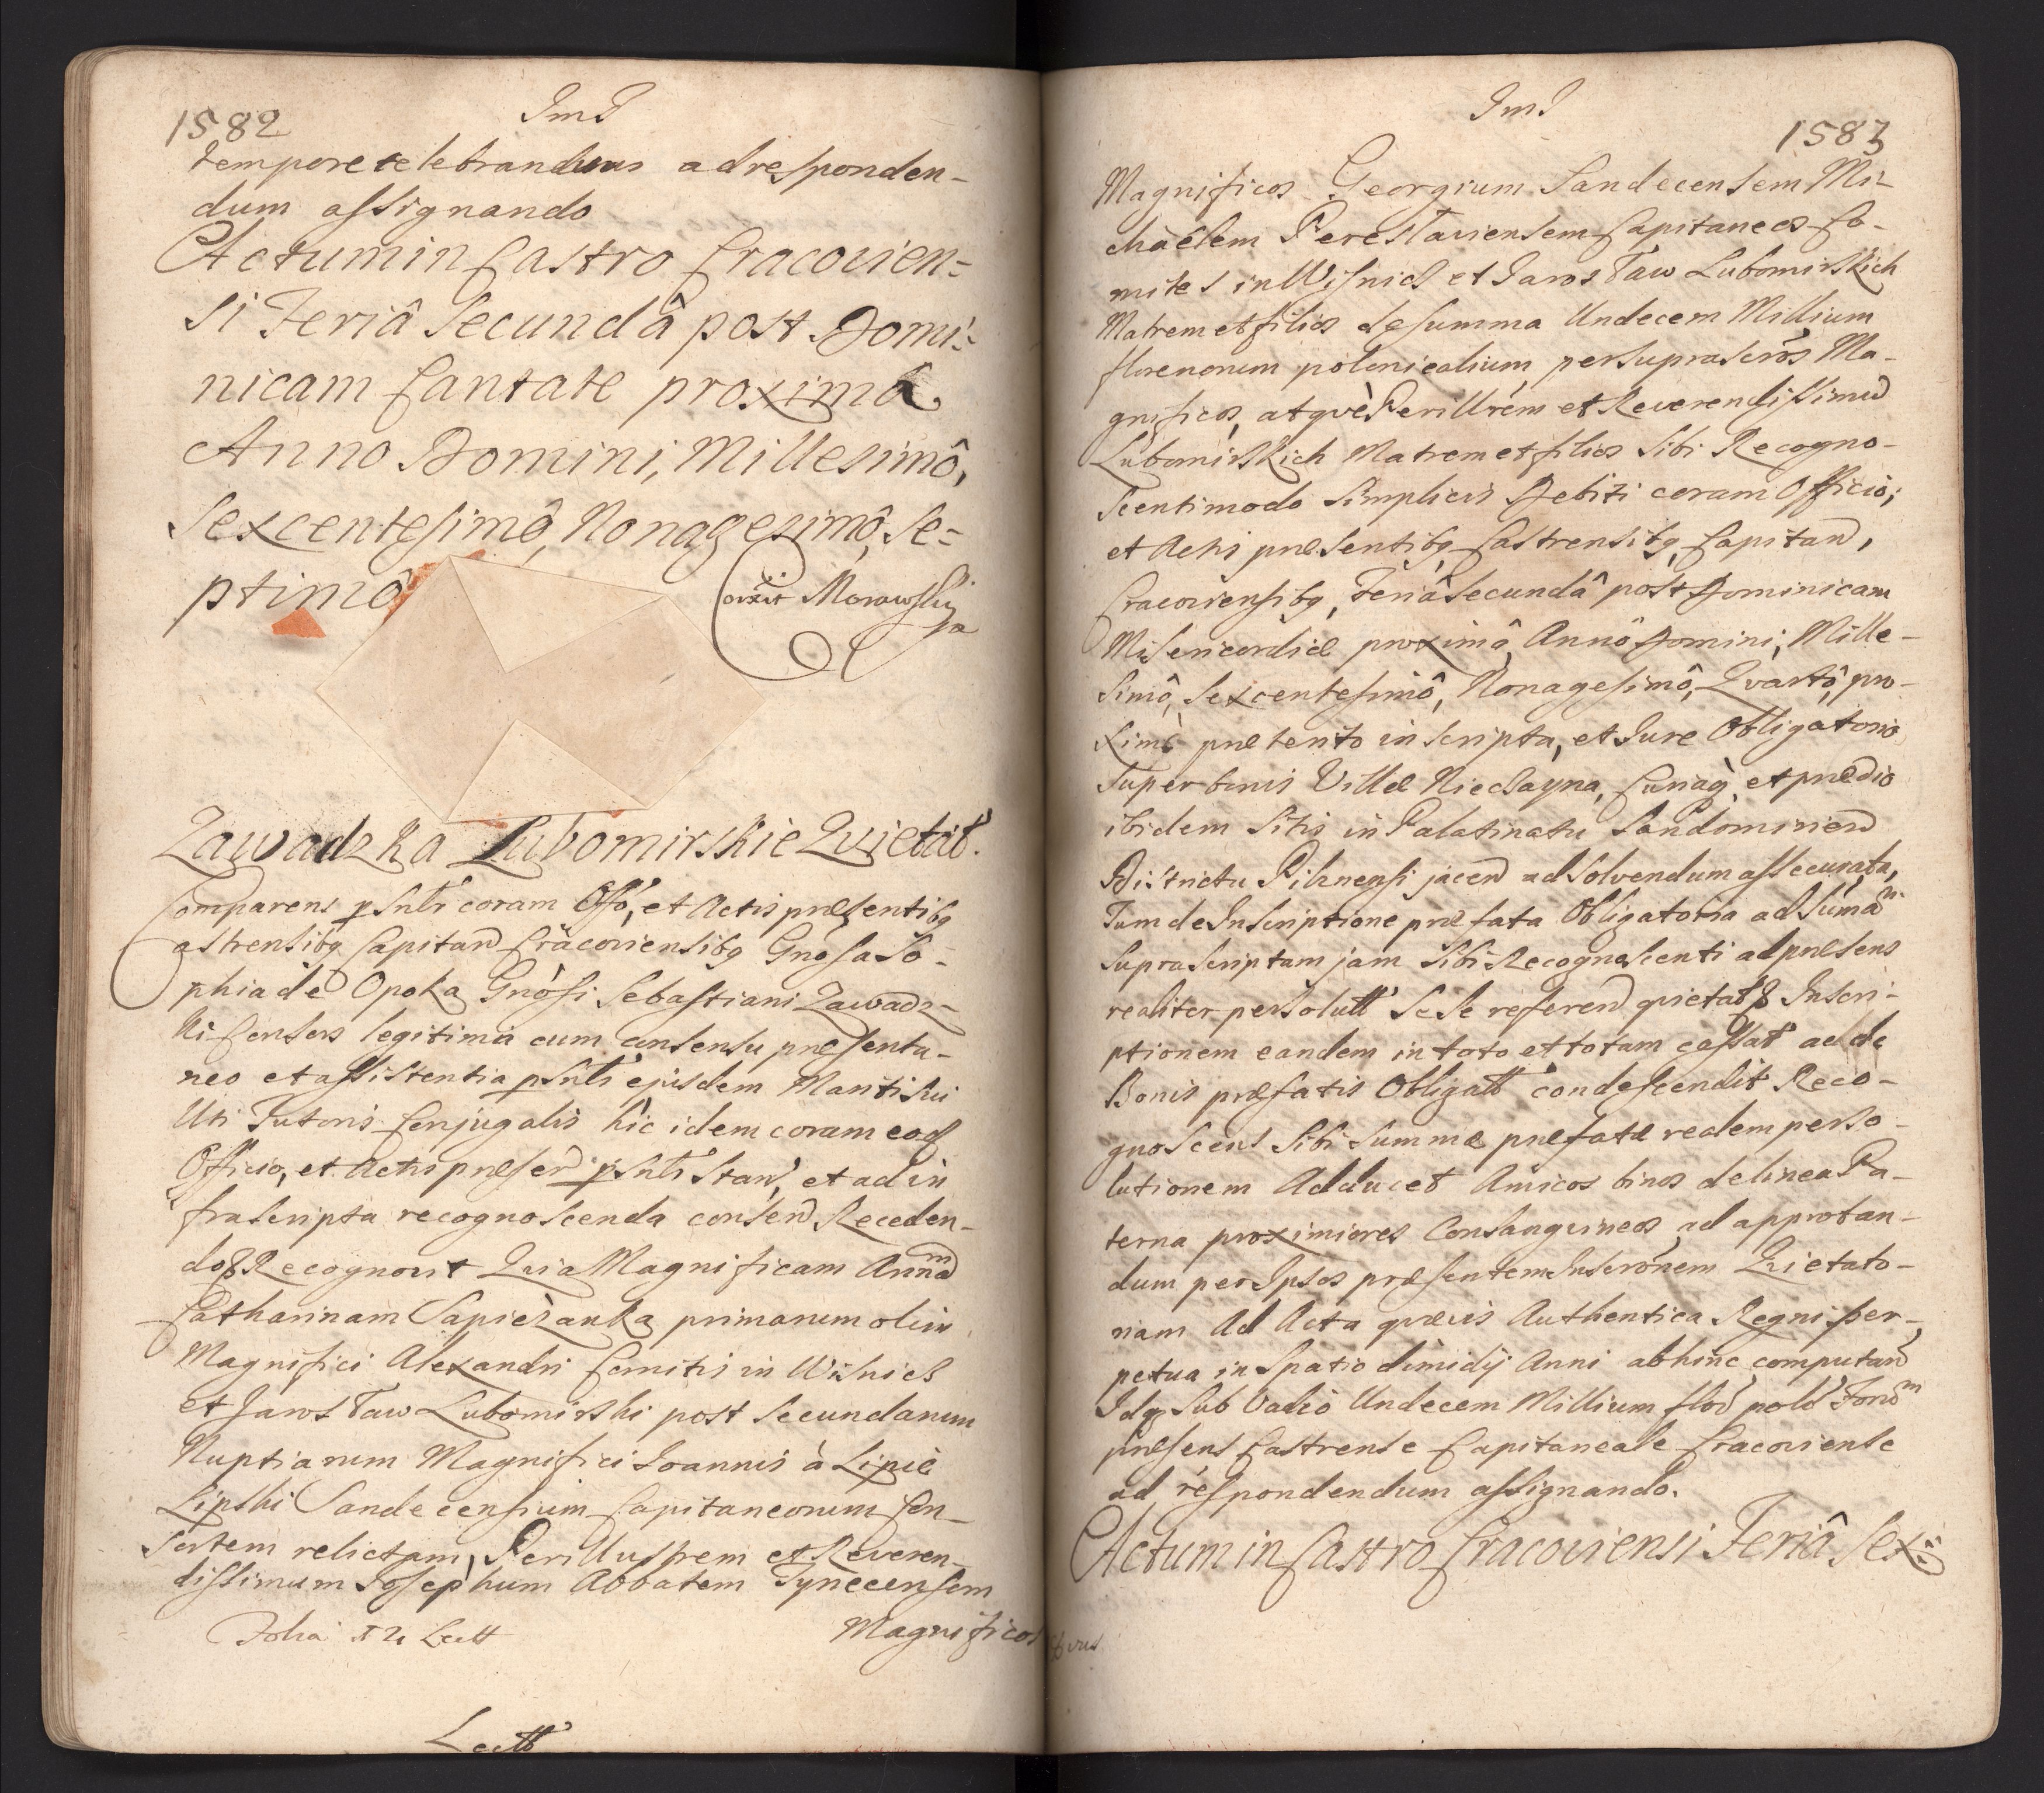 1582
ImI
tempore celebrandum ad responden-
dum assignando
Actum in Castro Cracovien=
si Feriâ Secundâ post Domi=
nicam Cantate proximâ
Anno Domini, Millesimô,
Sexcentesimô, Nonagesimô, Se=
ptimô
Corxit Morawsky
Zawadzka Lubomirskie Qvietat.
Comparens psnlr coram Offo, et Actis præsentibq
Castrensibq Capitan Cracoviensibq Gnosa So-
phia de Opoka Gnosi Sebastiani Zawadz-
ki Consors legitima cum consensu præsenta-
neo et assistentia psnli ejusdem Mariti sui
Uti Tutoris Conjugalis hic idem coram eod
Officio, et Actis præsen psnlr stan, et ad in
frascripta recognoscenda consen Receden-
do & Recognovit Qvia Magnificam Annam
Catharinam Sapieżanka primarum olim
Magnifici Alexandri Comitis in Wisnicz
et Jarosław Lubomirski post secundarum
Nuptiarum Magnifici Joannis à Lipie
Lipski Sandecensium Capitaneorum Con-
sortem relictam, Perillustrem et Reveren-
dissimum Josephum Abbatem Tynecensem
Magnificos
ImI
1583
Magnificos Georgium Sandecensem Mi-
chaèlem Peresłaviensem Capitaneos Co-
mites in Wisnicz et Jarosław Lubomirskich
Matrem et filios de summa Undecem Millium
florenorum polonicalium per suprascros Ma-
gnificos, atqvè Perillrem et Reverendissimu
Lubomirskich Matrem et filios sibi Recogno-
scenti modo simplicis Debiti coram Officio,
et Actis præsentibq Castrensibq Capitan,
Cracoviensibq, Feriâ Secundâ post Dominicam
Misericordiæ proximâ, Annô Domini, Mille-
simô, Sexcentesimô, Nonagesimô, Qvartô, pro-
ximè præterito inscripta, et Jure Obligatorio
super bonis Villæ Nieczayna, Curiaq, et prædio
ibidem sitis in Palatinatu Sandomirien
Districtu Pilznensi jacen ad solvendum assecurata,
Tum de Inscriptione præfata Obligatoria ad Sumam
supra scriptam jam sibi Recognoscenti ad præsens
realiter persolutt sese referen qvietat & Inscri-
ptionem eandem in toto et totam cassat ac de
Bonis præfatis Obligatt condescendit Reco-
gnoscens sibi summæ præfatæ realem perso-
lutionem Adducet Amicos binos de linea Pa-
terna proximiores Consangvineos ad approban-
dum per Ipsos præsentem Inscronem Qvietato-
riam Ad Acta qvævis Authentica Regni per-
petua in spatio dimidij Anni abhinc computan
Idq Sub Vadio Undecem Millium flor pold Forum
præsens Castrense Capitaneale Cracoviense
ad respondendum assignando.
Actum in Castro Cracoviensi Feriâ Sex=